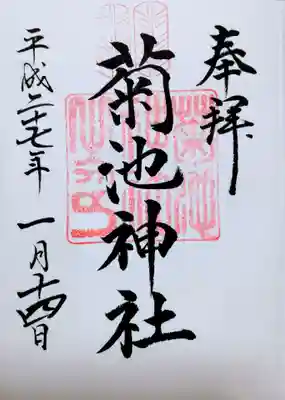 奉拝
菊池神社
平成二十七年一月十四日